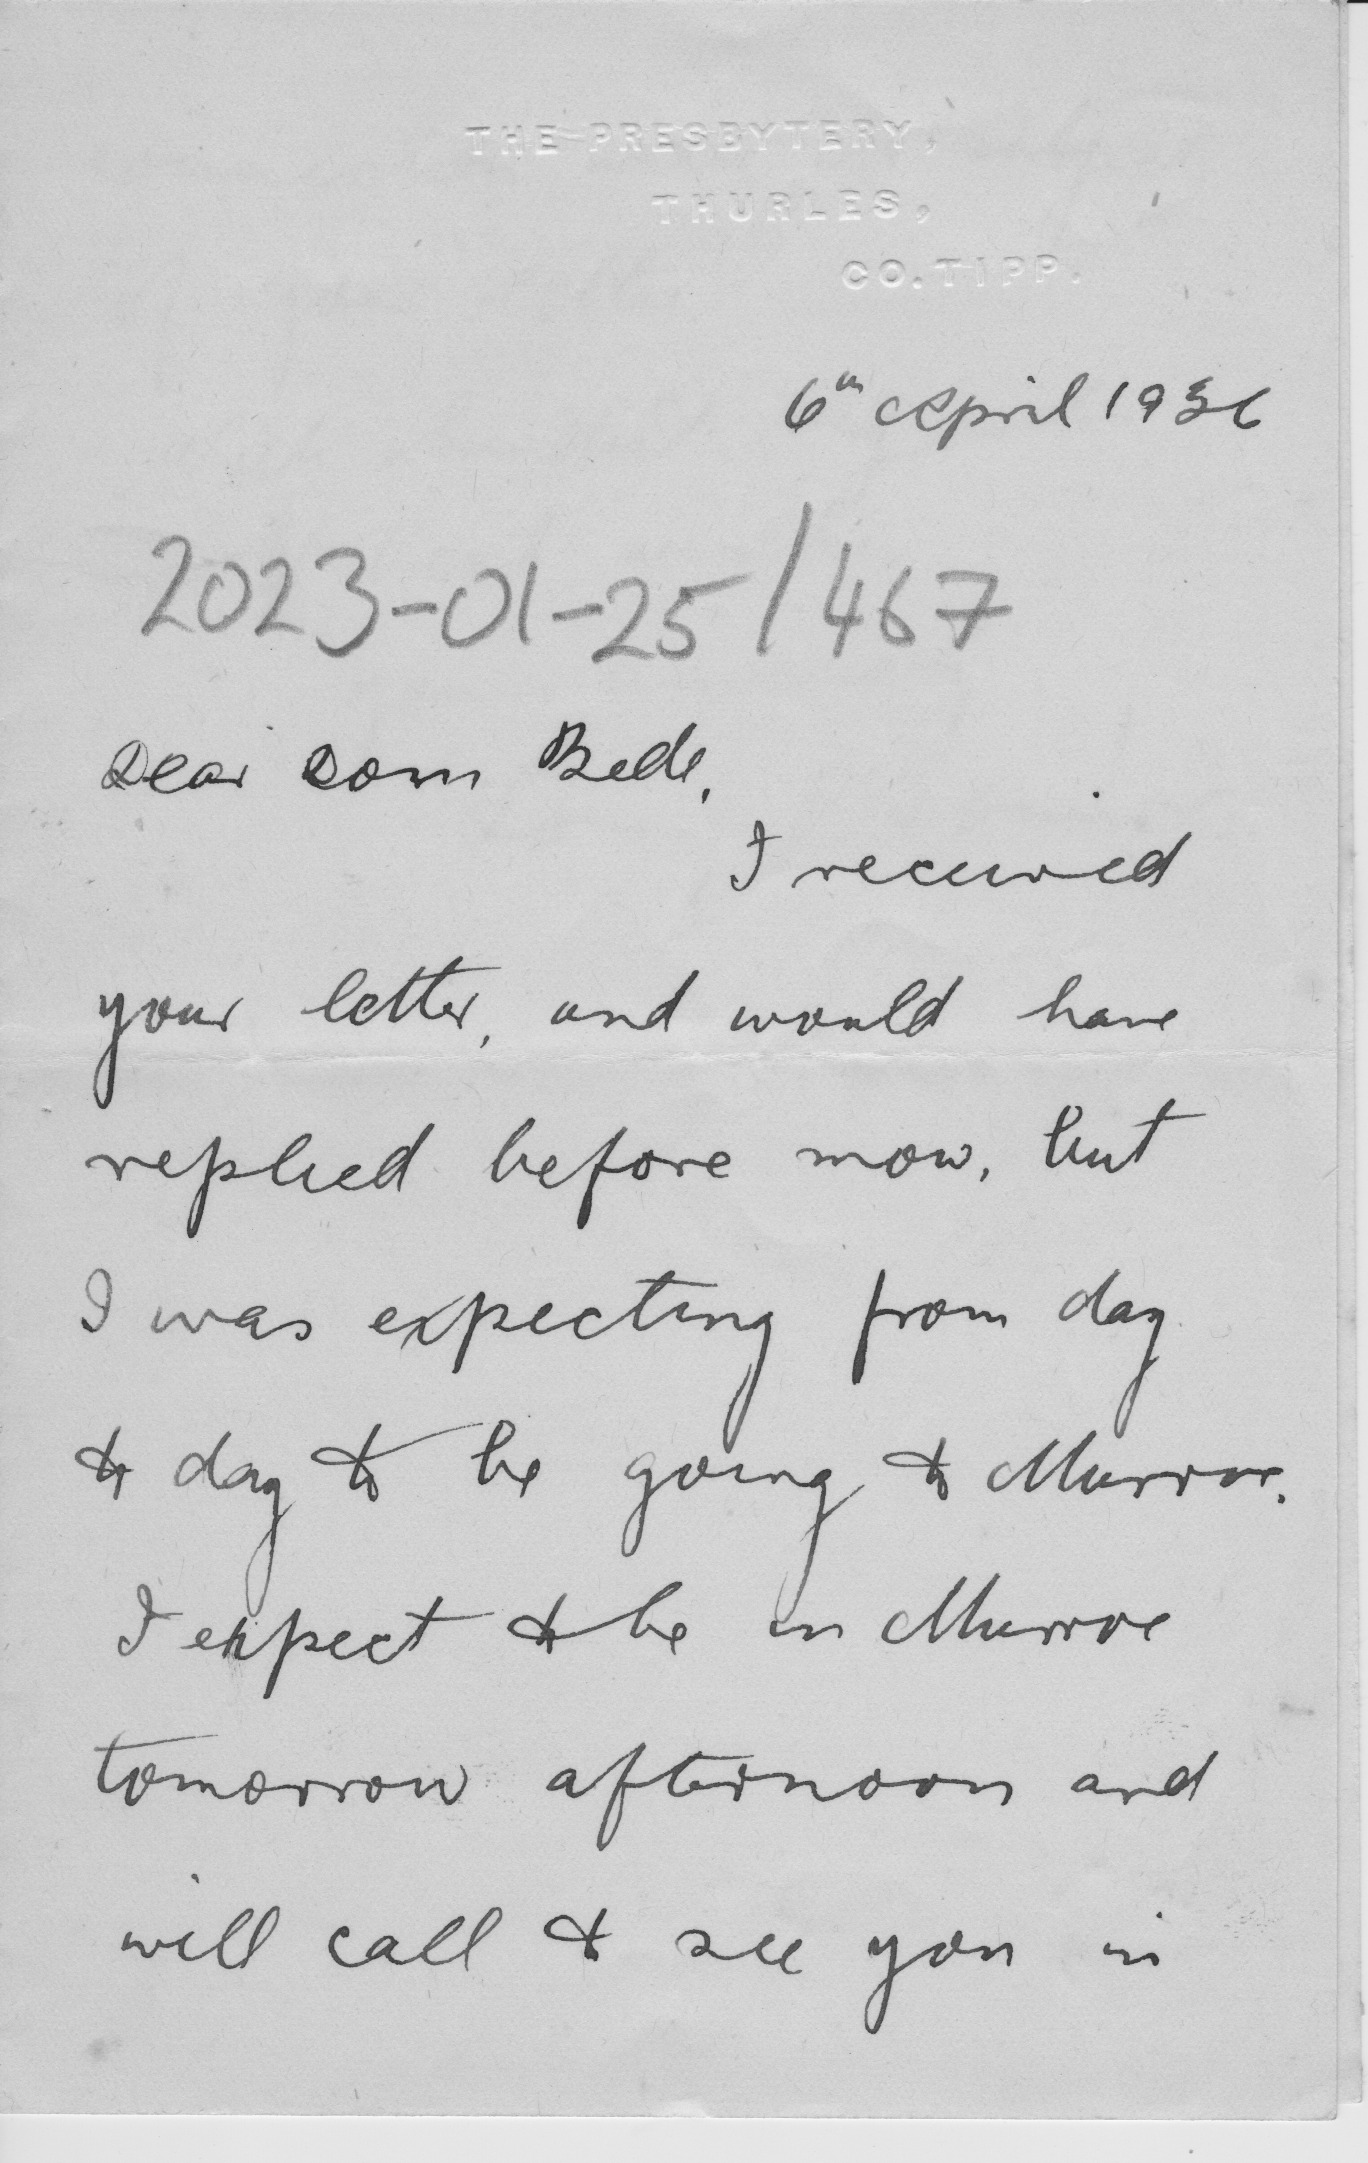 THE PRESBYTERY,
THURLES,
CO. TIPP.
6th April 1936
2023-01-25/467
Dear Dom Bede,
I received
your letter, and would have
replied before now, but
I was expecting from day
to day to be going to Murroe.
I expect to be in Murroe
tomorrow afternoon and
will call to see you in